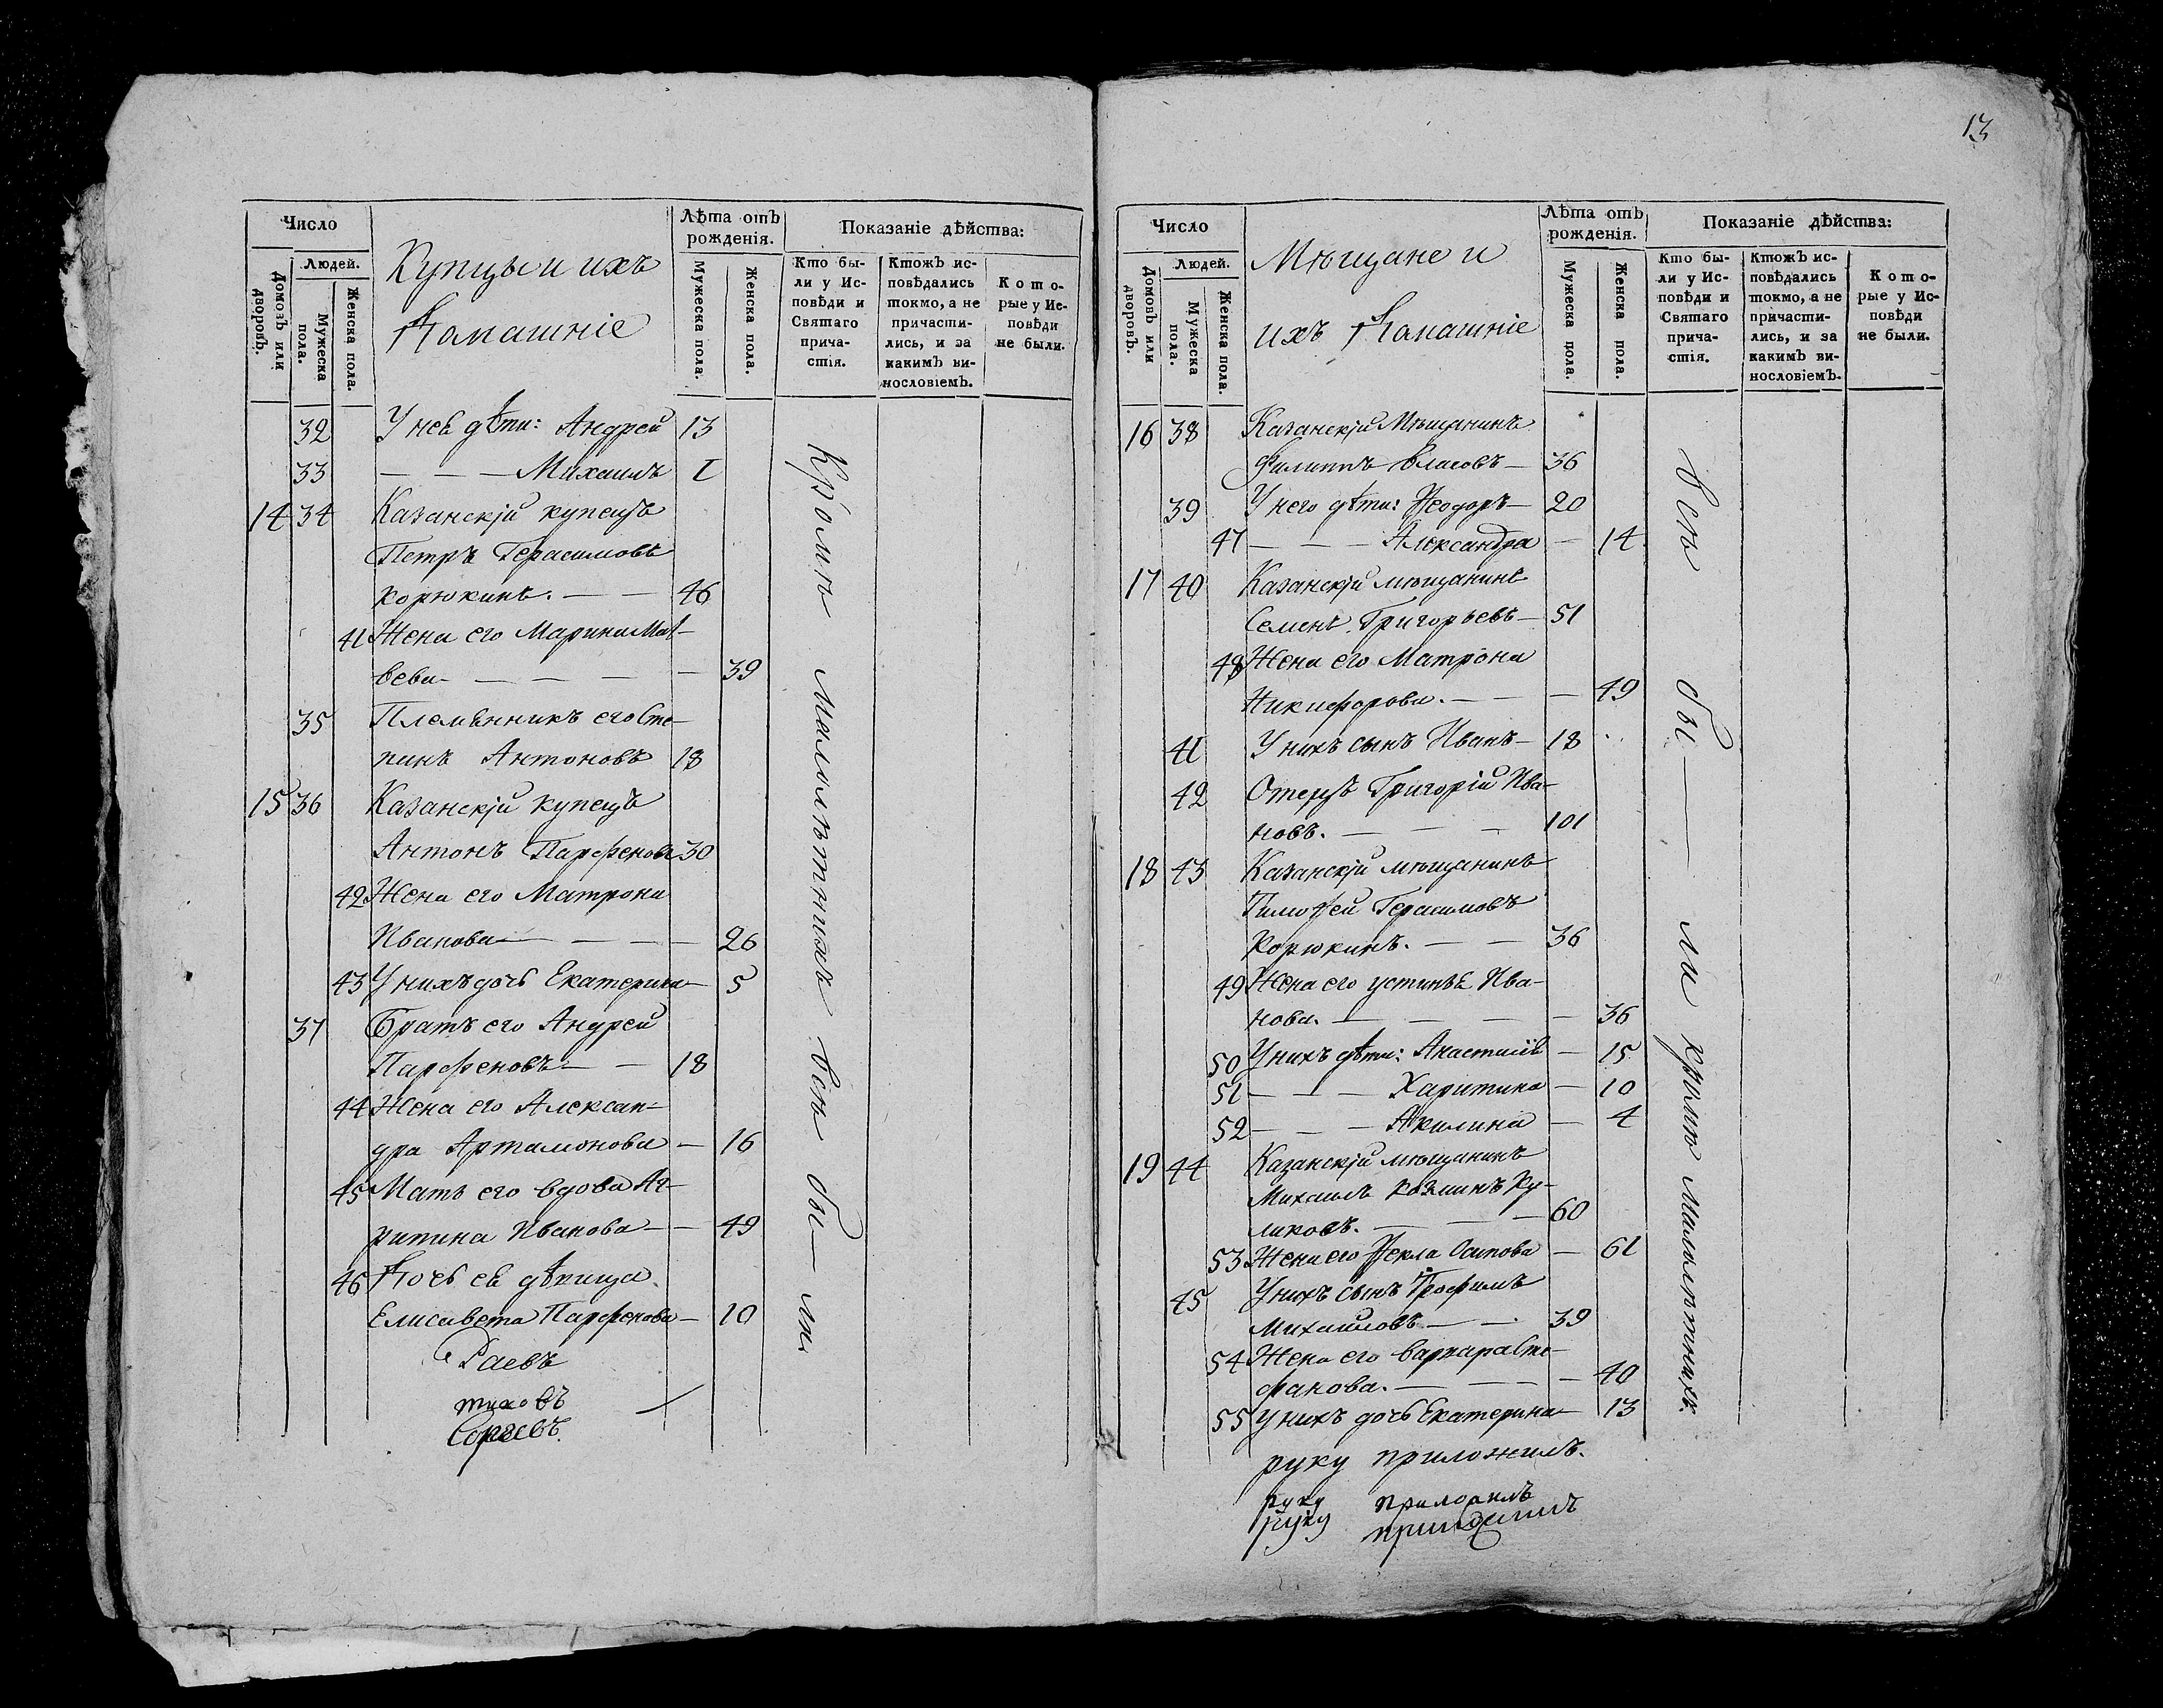 13
Число
Лѣта отъ рожденія.
Показаніе дѣйства:
Людей.
Домовъ или дворовъ.
Мужеска пола.
Женска пола.
Купцы и ихъ
Домашніе
Мужеска пола.
Женска пола.
Кто бы-
ли у Ис-
повѣди и
Святаго
прича-
стія.
Ктожъ ис-
повѣдались
токмо, а не
причасти-
лись, и за
какимъ ви-
нословіемъ.
Кото-
рые у Ис-
повѣди
не были.
32 У неѣ дѣти: Андрей 13
33 — — — Михаилъ 1
14 34 Казанскій купецъ
Петръ Герасимовъ
Корюкинъ. — — 46
41 Жена его Марина Мат-
веева — — — — — 39
35 Племѣнникъ его Сте-
панъ Антоновъ 18
15 36 Казанскій купецъ
Антонъ Парфеновъ 30
42 Жена его Матрона
Иванова — — — — 26
43 У нихъ дочь Екатерина — 5
37 Братъ его Андрей
Парфеновъ — — 18
44 Жена его Алексан-
дра Артамонова — 16
45 Мать его вдова Аг-
рипина Иванова — — 49
46 Дочь еѣ дѣвица
Елисавета Парфенова — 10
Кромѣ малолѣтнихъ всѣ бы — ли.
Раевъ
тиховъ
Сергевъ.
Число
Лѣта отъ рожденія.
Показаніе дѣйства:
Людей.
Домовъ или дворовъ.
Мужеска пола.
Женска пола.
Мѣщане и
ихъ Домашніе
Мужеска пола.
Женска пола.
Кто бы-
ли у Ис-
повѣди и
Святаго
прича-
стія.
Ктожъ ис-
повѣдались
токмо, а не
причасти-
лись, и за
какимъ ви-
нословіемъ.
Кото-
рые у Ис-
повѣди
не были.
16 38 Казанскій Мѣщанинъ
Филиппъ Власовъ — 36
39 У него дѣти: Ѳеодоръ — 20
47 — — — Александра — 14
17 40 Казанскій мѣщанинъ
Семенъ Григорьевъ — 51
48 Жена его Матрона
Никифорова. — — — 49
41 У нихъ сынъ Иванъ — 18
42 Отецъ Григорій Ива-
новъ. — — — 101
18 43 Казанскій мѣщанинъ
Тимоѳей Герасимовъ
Корюкинъ. — — 36
49 Жена его Устинья Ива-
нова. — — — — 36
50 У нихъ дѣти: Анастасія — 15
51 — — — Харитина — 10
52 — — — Акилина — 4
19 44 Казанскій мѣщанинъ
Михаилъ Козминъ Ку-
ликовъ. — — — 60
53 Жена его Ѳекла Осипова — 61
45 У нихъ сынъ Трофимъ
Михаиловъ — — 39
54 Жена его Варвара Сте-
фанова. — — — — 40
55 У нихъ дочь Екатерина — 13
Всѣ бы — ли кромѣ малолѣтнихъ.
руку приложилъ.
руку приложилъ
руку приложилъ